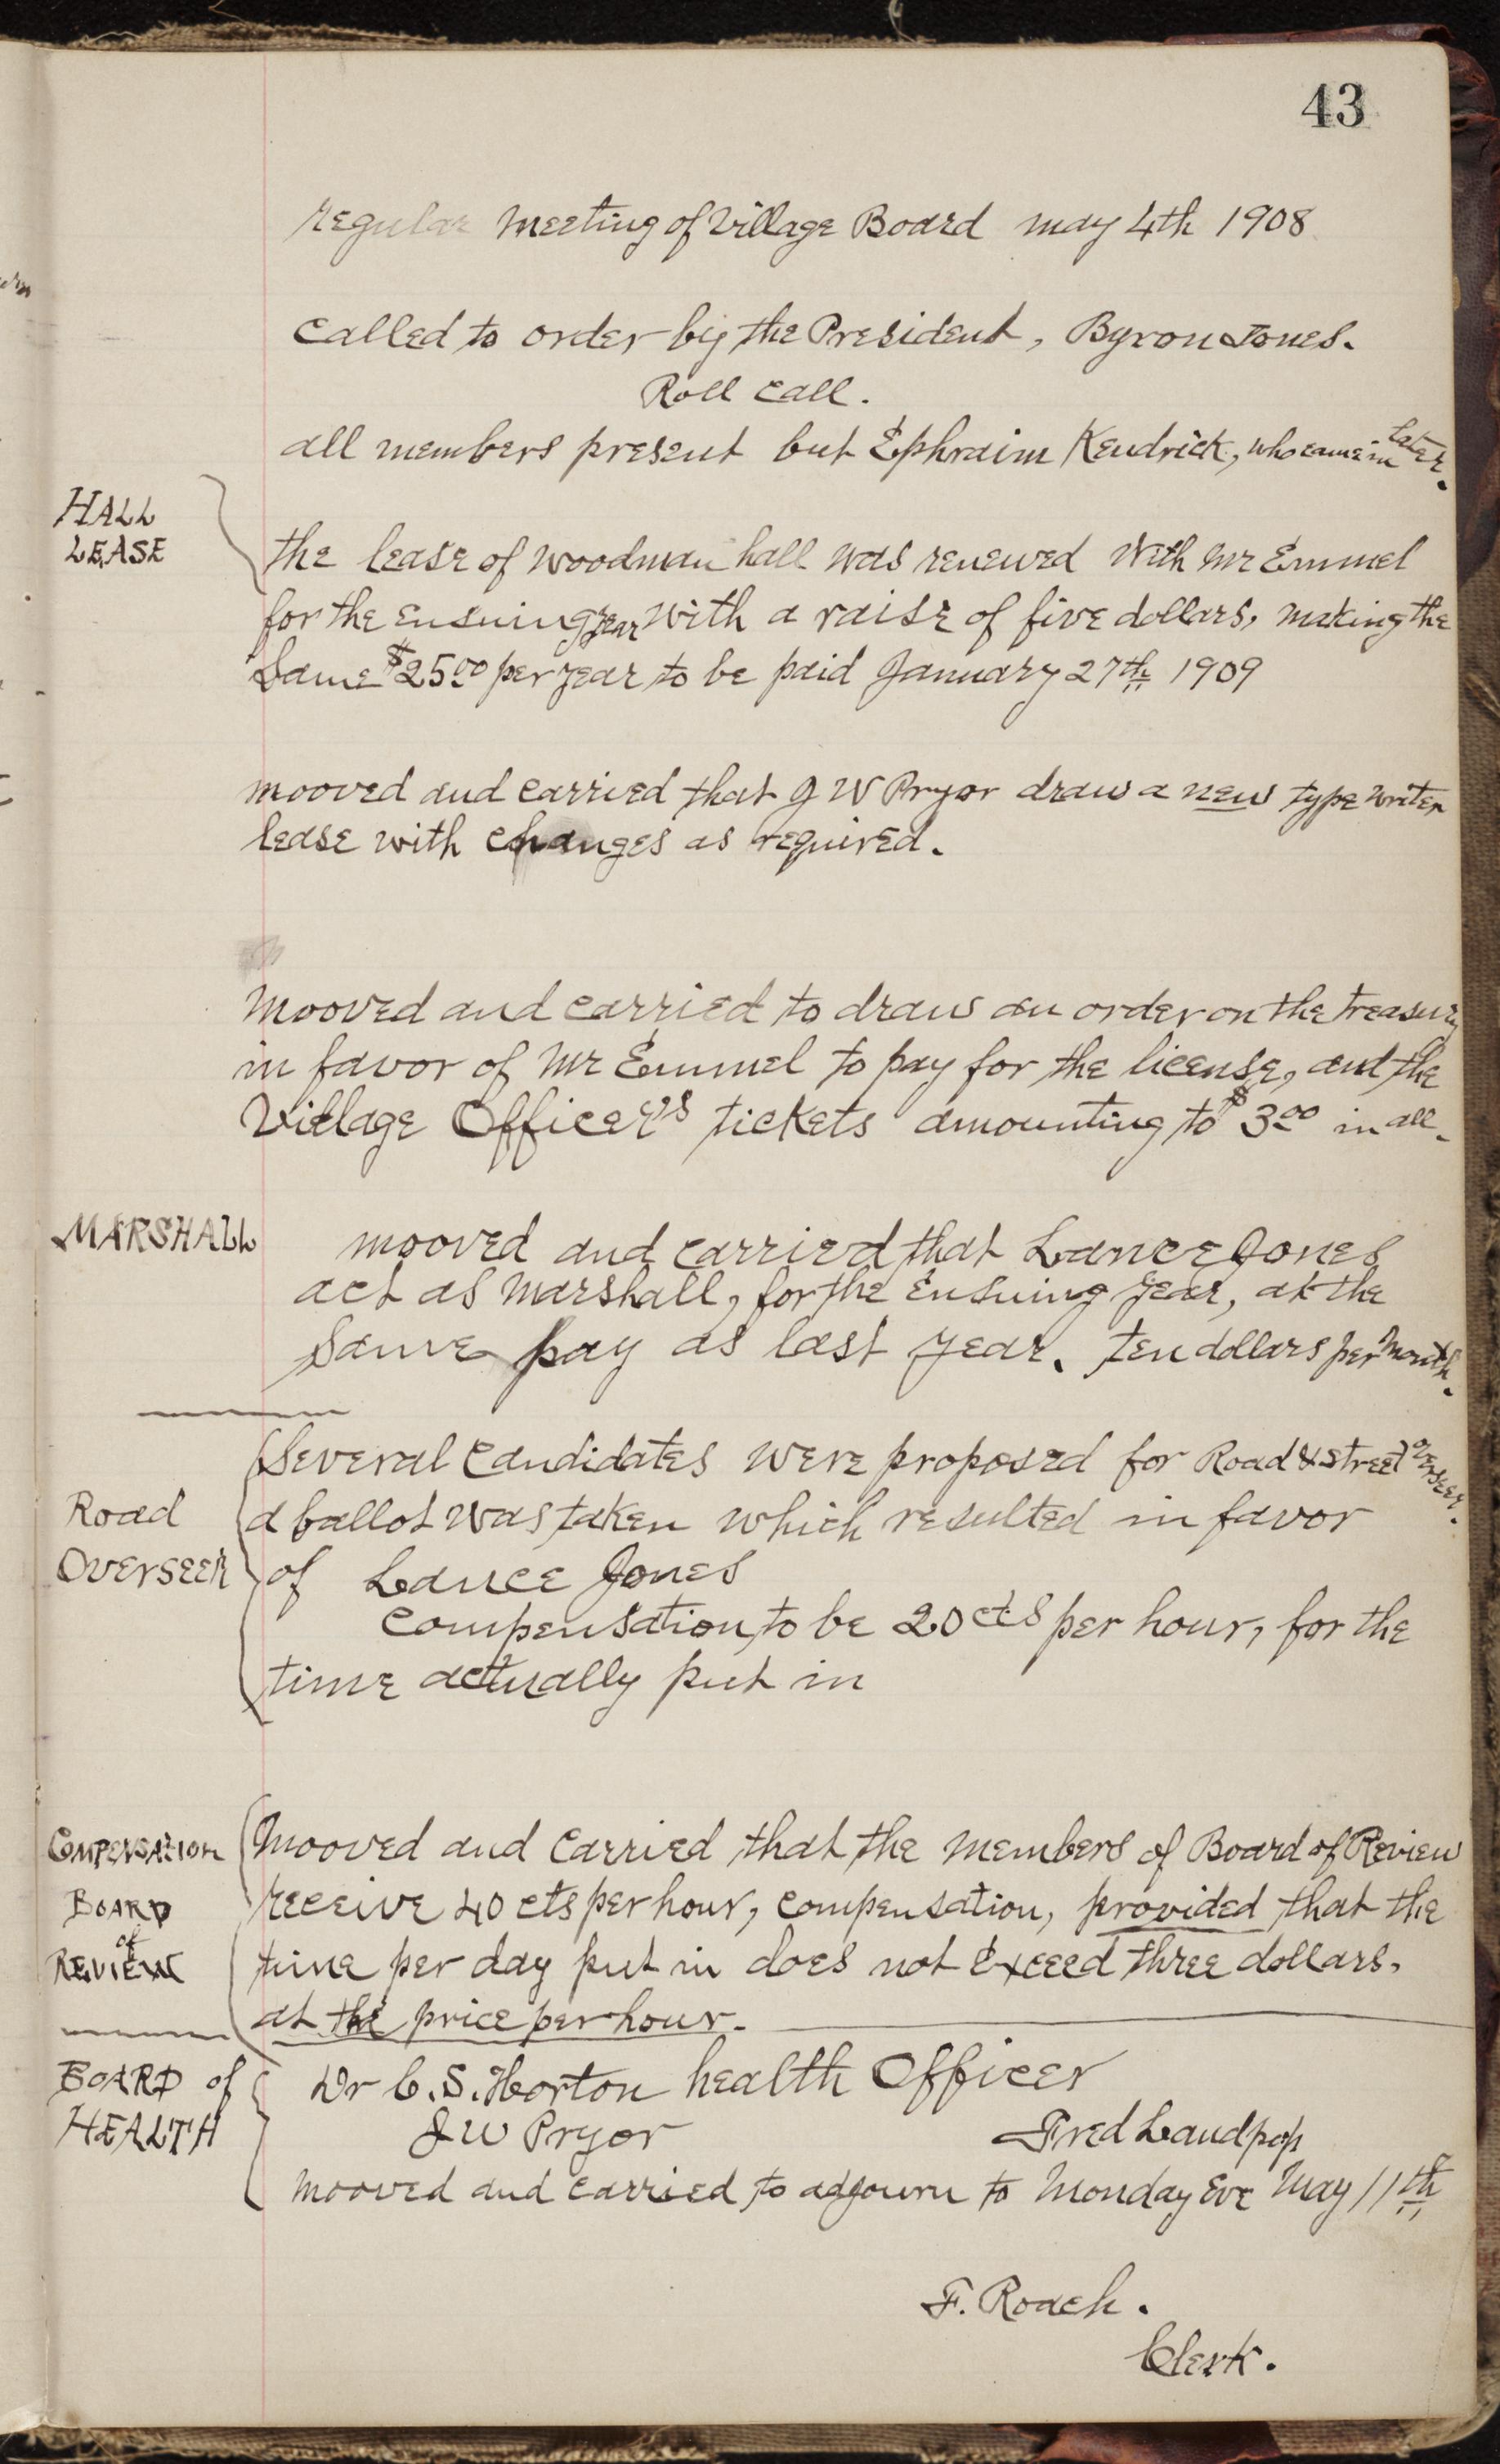 43
regular meeting of Village Board may 4th 1908
called to order by the President, Byron Jones.
Roll call.
all members present but Ephraim Kendrick, who came in later.
HALL
LEASE
the lease of Woodman hall was renewed with Mr Emmel
for the ensuing year with a raise of five dollars, making the
Same $25.00 per year to be paid January 27th 1909
mooved and carried that J W Pryor draw a new type writen
lease with changes as required.
Mooved and carried to draw an order on the treasury
in favor of Mr Emmel to pay for the license, and the
Village Officer's tickets amounting to $3.00 in all.
MARSHALL
mooved and carried that Lance Jones
act as marshall, for the Ensuing year, at the
Same pay as last year. ten dollars per month.
Several Candidates were proposed for Road & street overseer.
Road
a ballot was taken which resulted in favor
OVERSEER
of Lance Jones
Compensation, to be 20 cts per hour, for the
time actually put in
COMPENSATION
Mooved and Carried that the members of Board of Review
BOARD
receive 40 cts per hour, compensation, provided that the
of
REVIEW
time per day put in does not Exceed three dollars.
at the price per hour.
BOARD of
Dr C. S. Horton health Officer
HEALTH
J W Pryor Fred Landpap
mooved and carried to adjourn to Monday Eve May 11th
F. Roach.
Clerk.